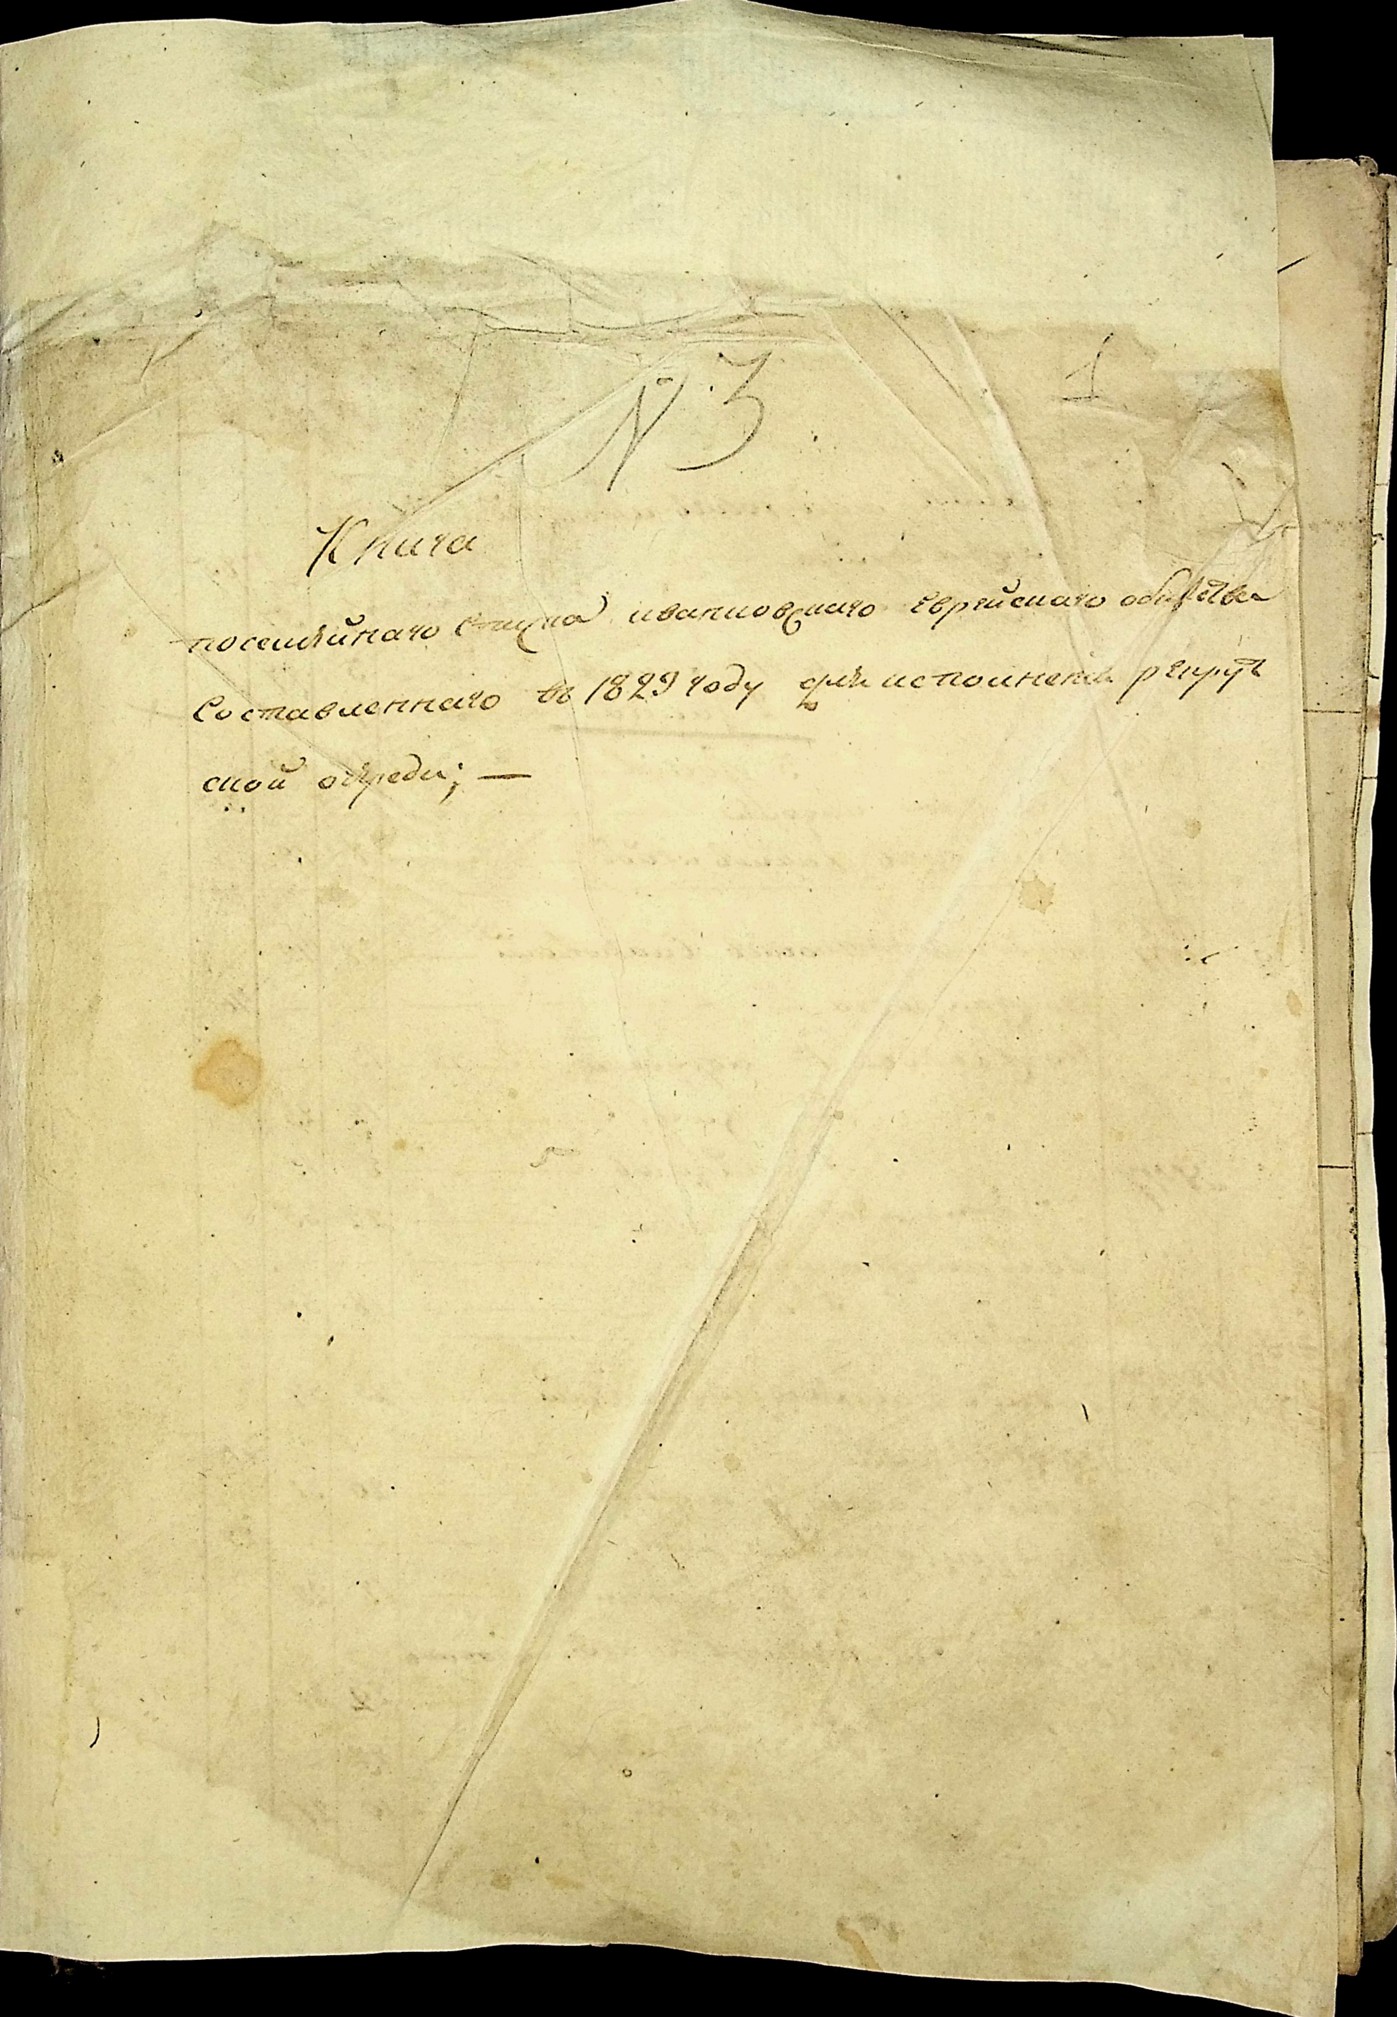 N 3
1
Книга
посемѣйнаго списка ивановскаго еврейскаго общества
составленнаго въ 1829 году для исполненія рекрут
ской очереди; —